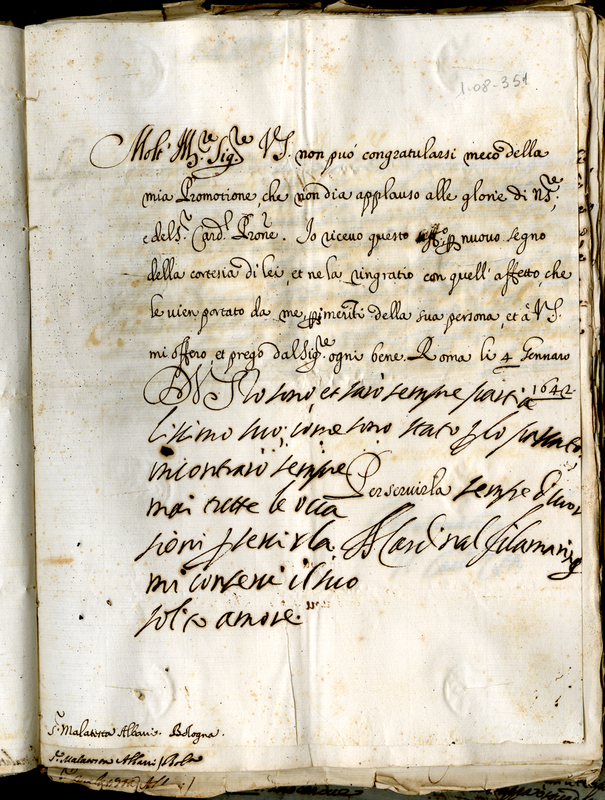 1-08-351
Molt' Ill.re Sig.re V.S. non può congratularsi meco della
mia Promotione, che non dia applauso alle glorie di N.re,
e del S.r Card.l Prone. Io ricevo questo nuovo segno
della cortesia di lei, et ne la ringratio con quell'affetto, che
le vien portato da me p meriti della sua persona, et à V.S.
mi offero, et prego dal Sig.re ogni bene. Roma li 4 Gennaro
1642.
D V S Io sono, et sarò sempre partia
lissimo suo, come sono stato p lo passato,
incontrarò sempre
mai tutte le occa
sioni p servirla.
mi conservi il suo
solito amore.
Per servirla sempre di cuor
Il Cardinal Filamarino
S.r Malatesta Albani. Bologna.
S.r Malatesta Albani / Bol